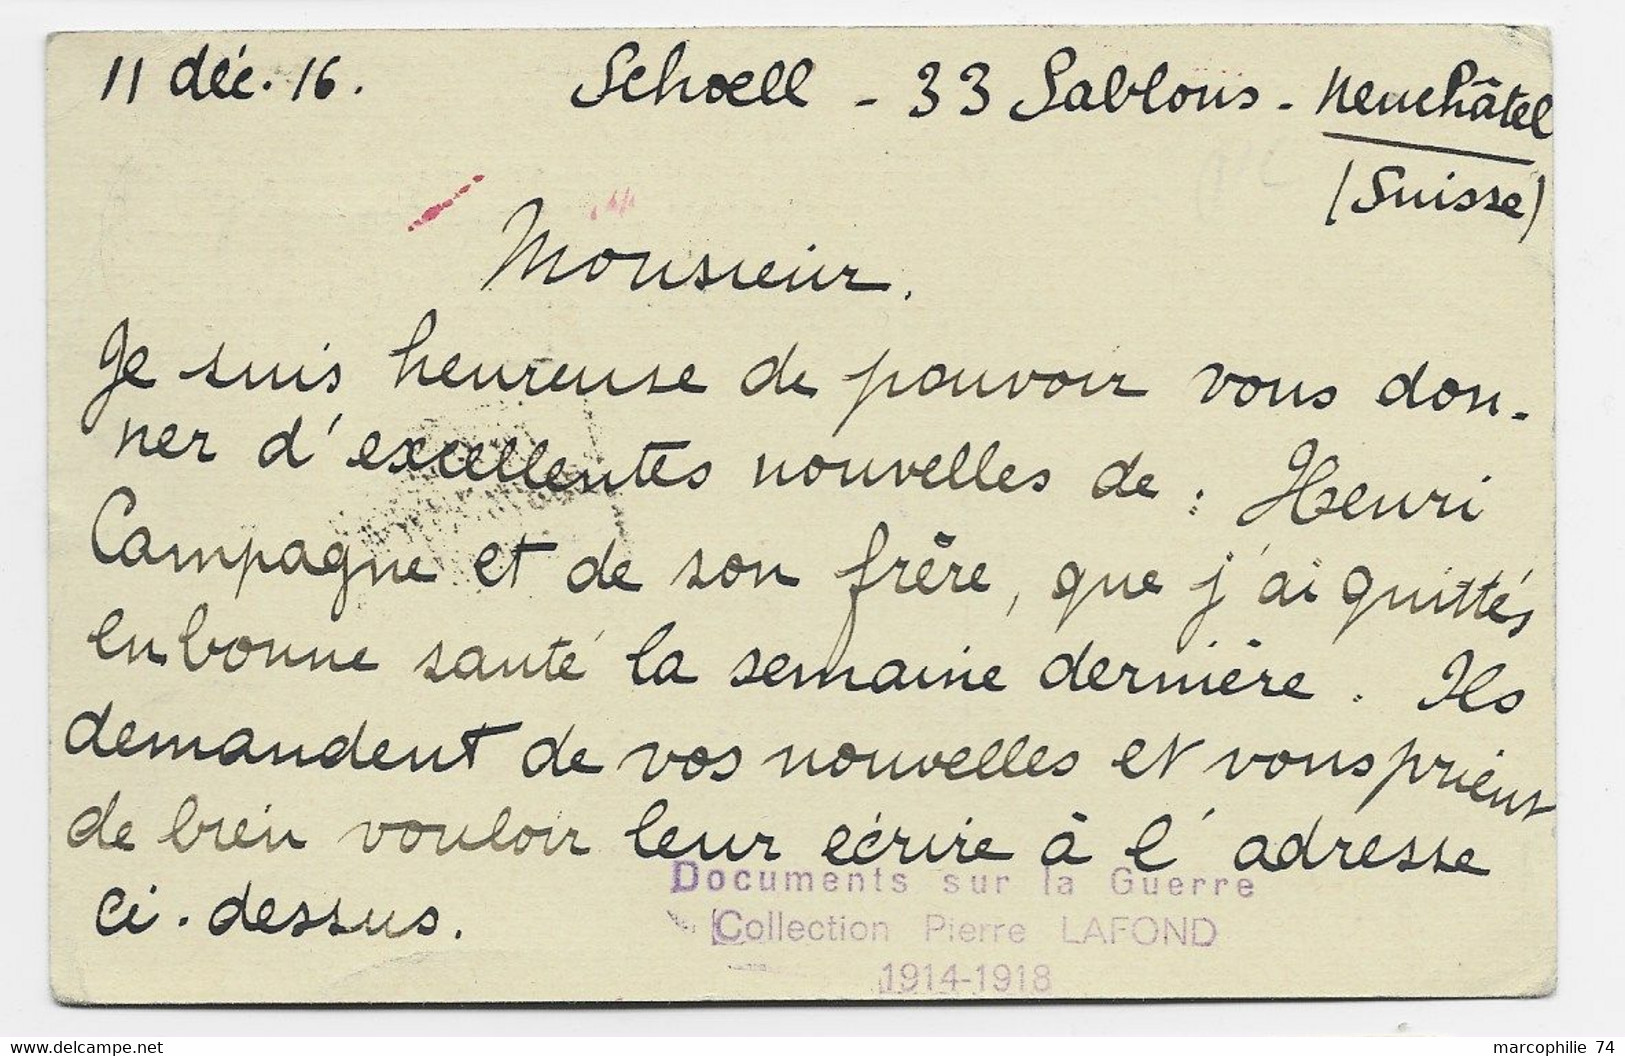 11 déc. 16. Schoell - 33 Sablons - Neuchâtel
(Suisse)
Monsieur.
Je suis heureuse de pouvoir vous don-
ner d'excellentes nouvelles de : Henri
Campagne et de son frère, que j'ai quittés
en bonne santé la semaine dernière. Ils
demandent de vos nouvelles et vous prient
de bien vouloir leur écrire à l'adresse
ci-dessus.
Documents sur la Guerre
Collection Pierre LAFOND
1914-1918
marcophilie 74